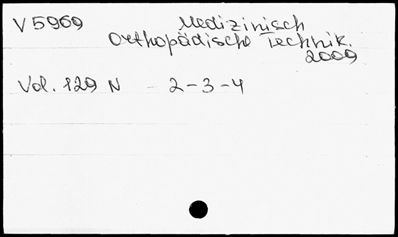 V5969 Medizinisch
Orthopädische Technik.
2009
Vol. 129 N 2-3-4